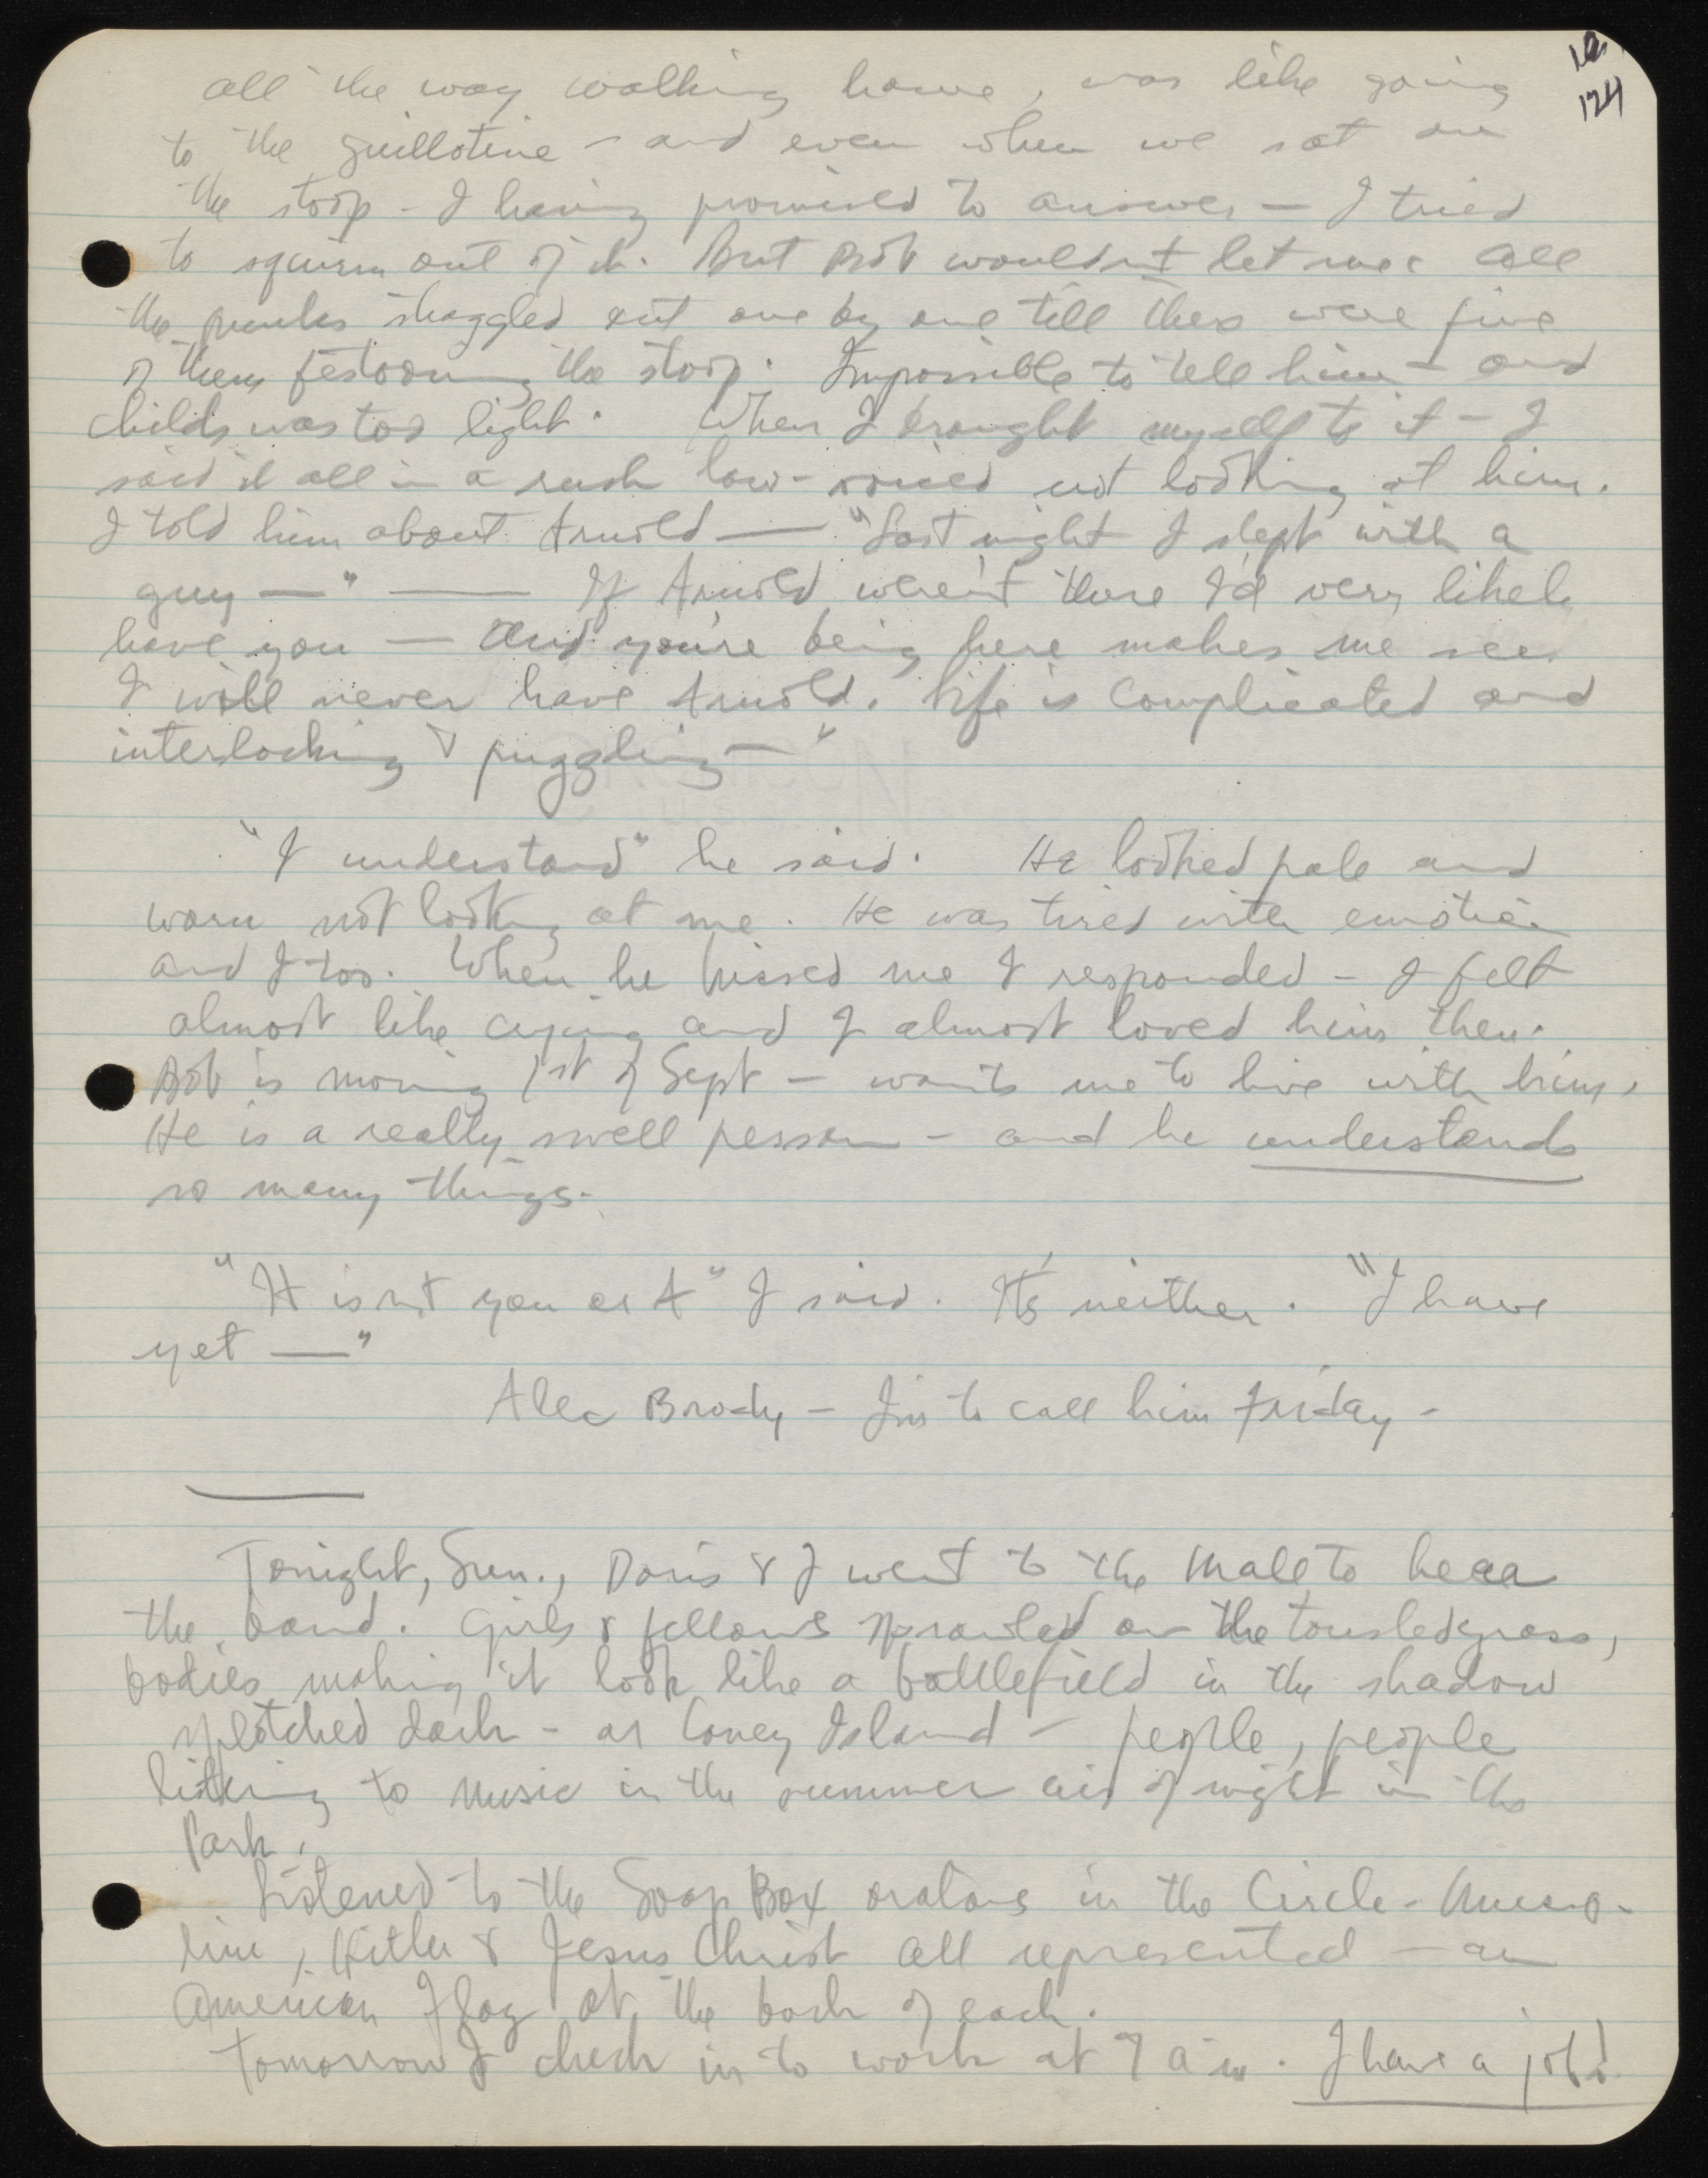 124
all the way walking home, was like going
to the guillotine - and even when we sat on
the stoop - I having promised to answer - I tried
to squirm out of it. But Bob wouldn't let me. All
the punks straggled out one by one till there were five
of them festooning the stoop. Impossible to tell him - and
Childs was too light. When I brought myself to it - I
said it all in a rush low-voiced not looking at him.
I told him about Arnold — "Last night I slept with a
guy —" — If Arnold weren't there I'd very likely
have you — And you're being here makes me see
I will never have Arnold. Life is complicated and
interlocking & puzzling —"
"I understand" he said. He looked pale and
worn not looking at me. He was tired with emotion
and I too. When he kissed me I responded - I felt
almost like crying and I almost loved him then.
Bob is moving 1st of Sept - wants me to live with him.
He is a really swell person - and he understands
so many things.
"It isn't you or A" I said. It's neither. "I have
yet —"
Alec Brody - I'm to call him Friday -
Tonight, Sun., Doris & I went to the Mall to hear
the band. Girls & fellows sprawled on the tousled grass,
bodies making it look like a battlefield in the shadow
splotched dark - or Coney Island - people, people
listening to music in the summer air of night in the
Park.
Listened to the Soap Box orators in the Circle - Musso-
lini, Hitler & Jesus Christ all represented - an
American Flag at the back of each.
Tomorrow I check in to work at 9 a m. I have a job!